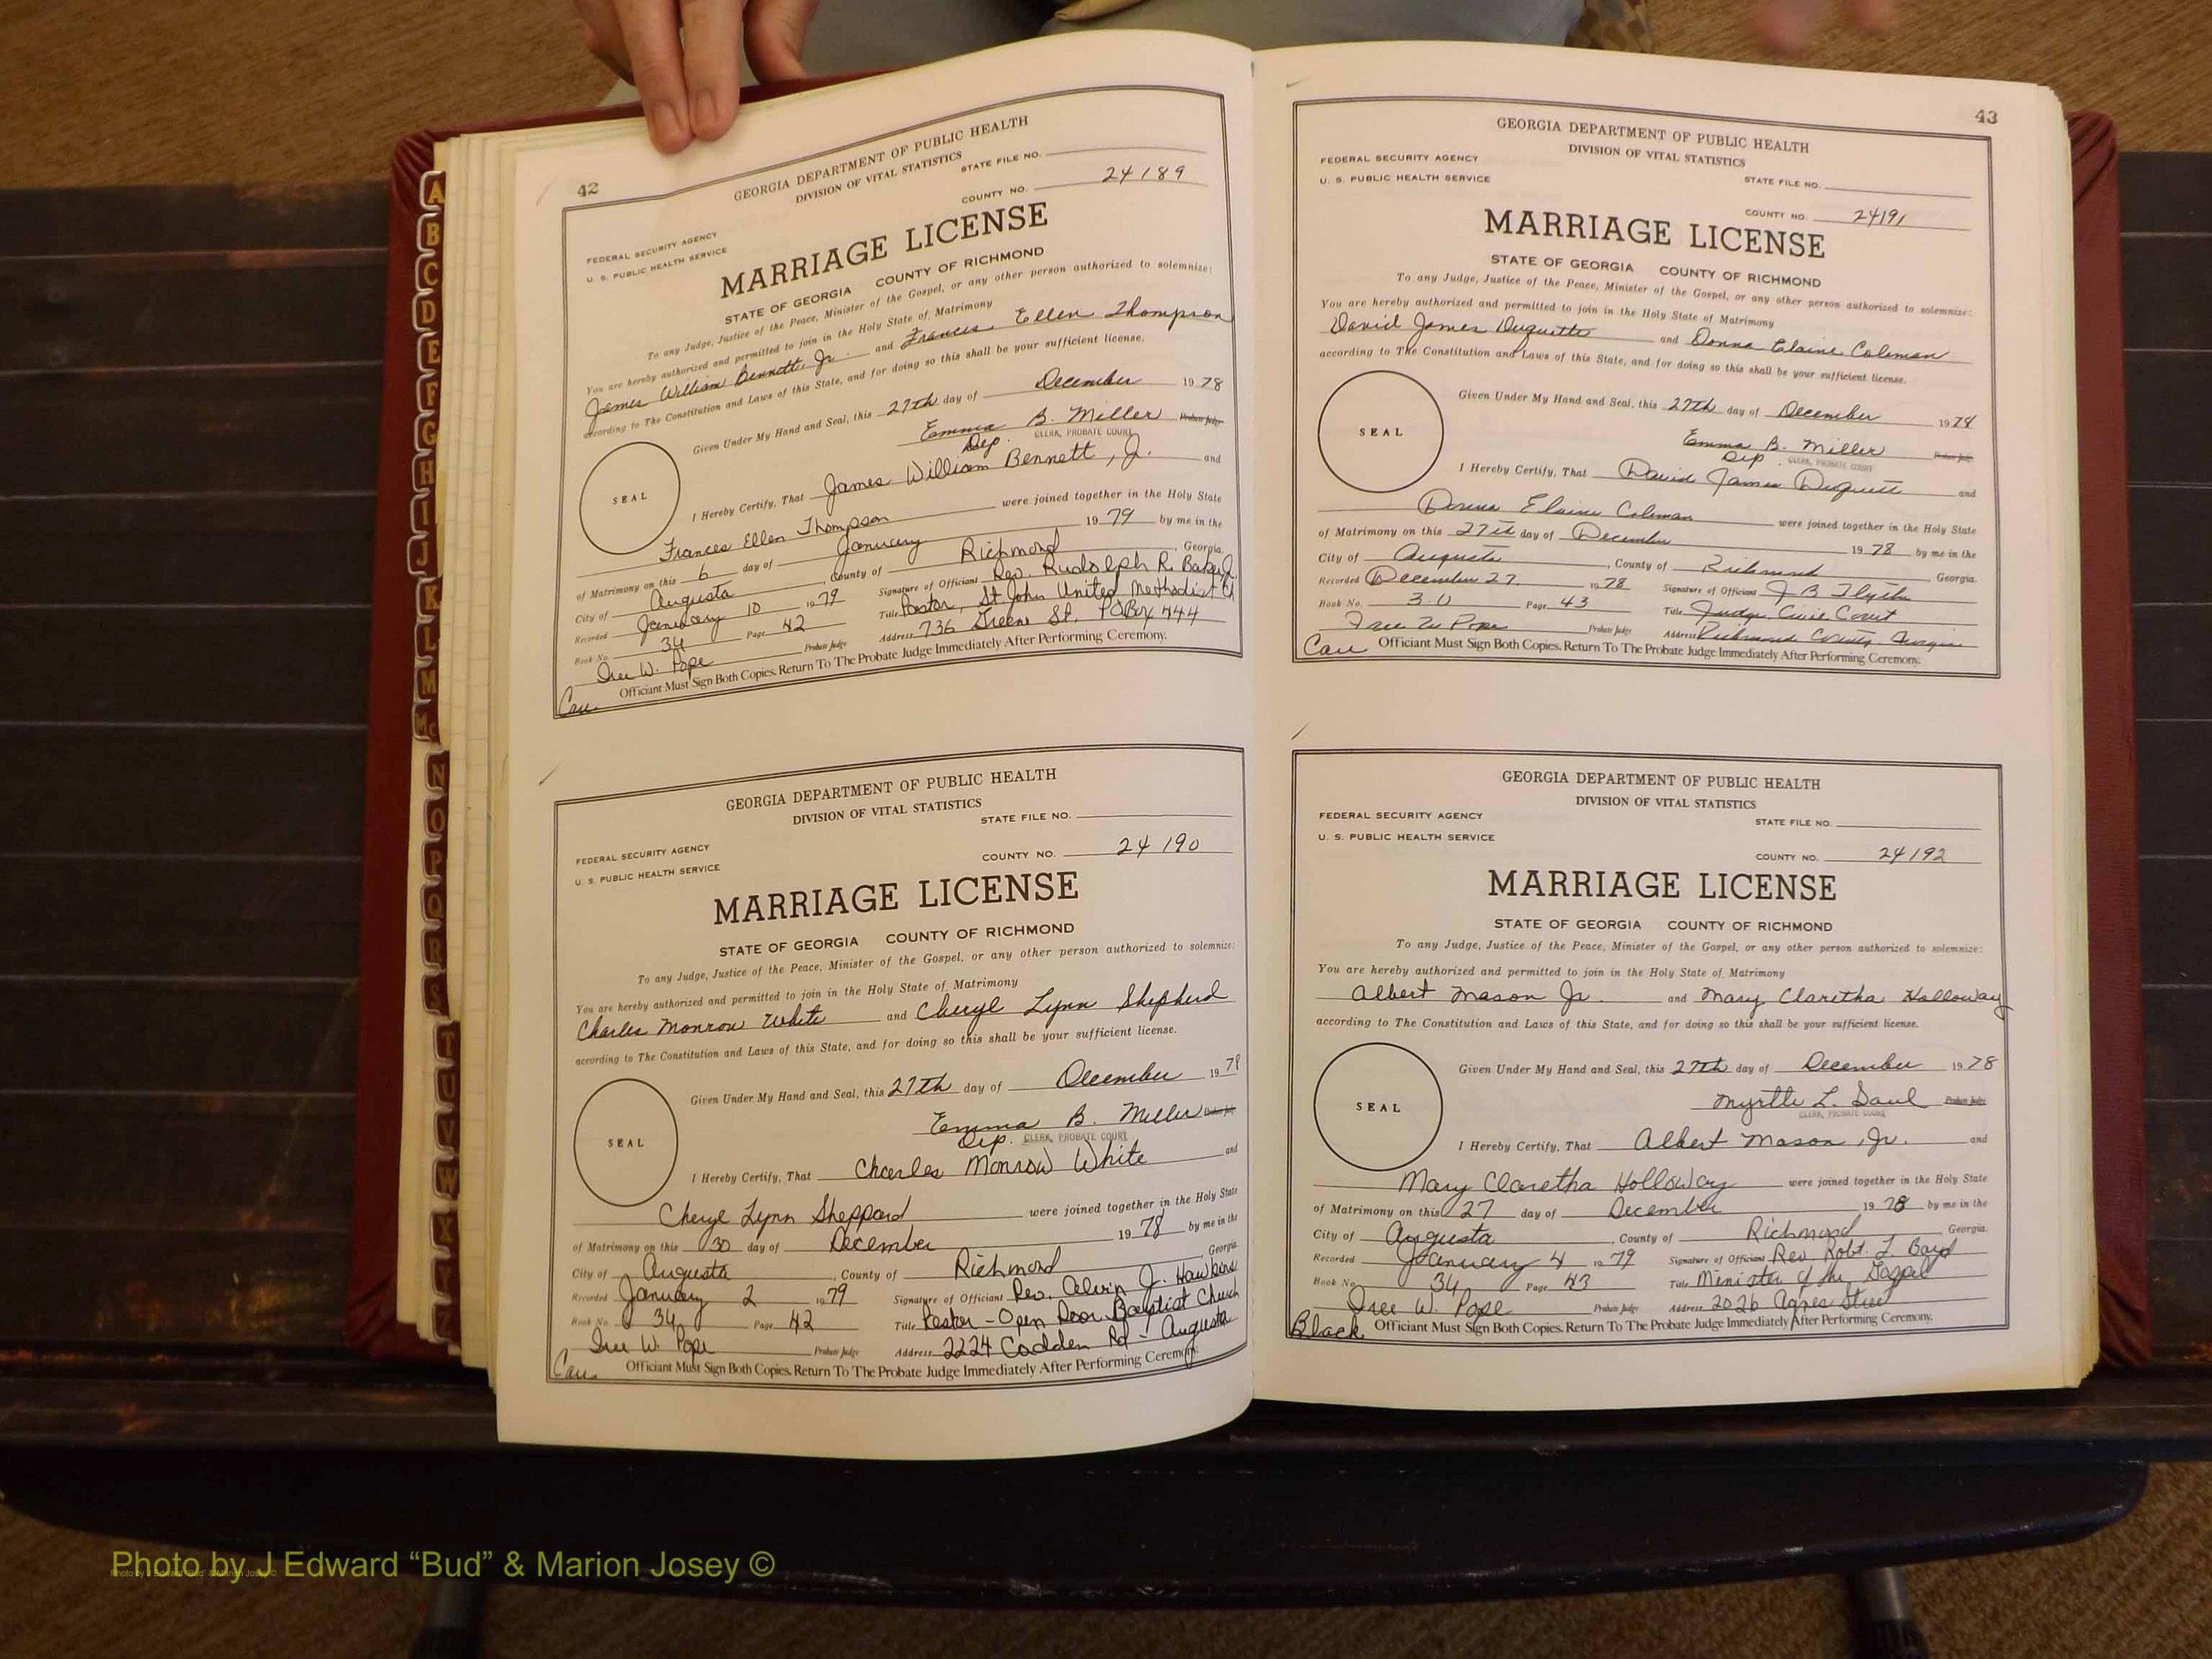 42
GEORGIA DEPARTMENT OF PUBLIC HEALTH
DIVISION OF VITAL STATISTICS
STATE FILE NO.
COUNTY NO. 24189
FEDERAL SECURITY AGENCY
U. S. PUBLIC HEALTH SERVICE
MARRIAGE LICENSE
STATE OF GEORGIA COUNTY OF RICHMOND
To any Judge, Justice of the Peace, Minister of the Gospel, or any other person authorized to solemnize:
You are hereby authorized and permitted to join in the Holy State of Matrimony
James William Bennett, Jr. and Frances Ellen Thompson
according to The Constitution and Laws of this State, and for doing so this shall be your sufficient license.
Given Under My Hand and Seal, this 27th day of December 19 78
Emma B. Miller Probate Judge
Dep. CLERK, PROBATE COURT
SEAL
I Hereby Certify, That James William Bennett, Jr. and
Frances Ellen Thompson were joined together in the Holy State
of Matrimony on this 6 day of January 19 79 by me in the
City of Augusta, County of Richmond, Georgia.
Recorded January 10 1979 Signature of Officiant Rev. Rudolph R. Baker, Jr.
Book No. 34 Page 42 Title Pastor, St. John United Methodist Ch
Iree W. Pope Probate Judge Address 736 Greene St. PO Box 444
Cau. Officiant Must Sign Both Copies. Return To The Probate Judge Immediately After Performing Ceremony.
GEORGIA DEPARTMENT OF PUBLIC HEALTH
DIVISION OF VITAL STATISTICS
STATE FILE NO.
FEDERAL SECURITY AGENCY
U. S. PUBLIC HEALTH SERVICE
COUNTY NO. 24190
MARRIAGE LICENSE
STATE OF GEORGIA COUNTY OF RICHMOND
To any Judge, Justice of the Peace, Minister of the Gospel, or any other person authorized to solemnize:
You are hereby authorized and permitted to join in the Holy State of Matrimony
Charles Monrow White and Cheryl Lynn Shepherd
according to The Constitution and Laws of this State, and for doing so this shall be your sufficient license.
Given Under My Hand and Seal, this 27th day of December 19 78
Emma B. Miller Probate Judge
Dep. CLERK, PROBATE COURT
SEAL
I Hereby Certify, That Charles Monrow White and
Cheryl Lynn Sheppard were joined together in the Holy State
of Matrimony on this 30 day of December 19 78 by me in the
City of Augusta, County of Richmond, Georgia
Recorded January 2 1979 Signature of Officiant Rev. Alvin J. Hawkins
Book No. 34 Page 42 Title Pastor - Open Door Baptist Church
Iree W. Pope Probate Judge Address 2224 Rd - Augusta
Cau. Officiant Must Sign Both Copies. Return To The Probate Judge Immediately After Performing Ceremony.
43
GEORGIA DEPARTMENT OF PUBLIC HEALTH
DIVISION OF VITAL STATISTICS
FEDERAL SECURITY AGENCY
U. S. PUBLIC HEALTH SERVICE
STATE FILE NO.
COUNTY NO. 24191
MARRIAGE LICENSE
STATE OF GEORGIA COUNTY OF RICHMOND
To any Judge, Justice of the Peace, Minister of the Gospel, or any other person authorized to solemnize:
You are hereby authorized and permitted to join in the Holy State of Matrimony
David James Duquette and Donna Elaine Coleman
according to The Constitution and Laws of this State, and for doing so this shall be your sufficient license.
Given Under My Hand and Seal, this 27th day of December 1978
Emma B. Miller Probate Judge
Dep. CLERK, PROBATE COURT
SEAL
I Hereby Certify, That David James Duquette and
Donna Elaine Coleman were joined together in the Holy State
of Matrimony on this 27th day of December 19 78 by me in the
City of Augusta, County of Richmond Georgia.
Recorded December 27 1978 Signature of Officiant J B
Book No. Page 43 Title Judge Civil Court
Iree W Pope Probate Judge Address Richmond County Georgia
Cau Officiant Must Sign Both Copies. Return To The Probate Judge Immediately After Performing Ceremony.
GEORGIA DEPARTMENT OF PUBLIC HEALTH
DIVISION OF VITAL STATISTICS
FEDERAL SECURITY AGENCY
STATE FILE NO.
U. S. PUBLIC HEALTH SERVICE
COUNTY NO. 24192
MARRIAGE LICENSE
STATE OF GEORGIA COUNTY OF RICHMOND
To any Judge, Justice of the Peace, Minister of the Gospel, or any other person authorized to solemnize:
You are hereby authorized and permitted to join in the Holy State of Matrimony
Albert Mason Jr. and Mary Claretha Holloway
according to The Constitution and Laws of this State, and for doing so this shall be your sufficient license.
Given Under My Hand and Seal, this 27th day of December 1978
Myrtle L. Saul Probate Judge
CLERK, PROBATE COURT
SEAL
I Hereby Certify, That Albert Mason, Jr. and
Mary Claretha Holloway were joined together in the Holy State
of Matrimony on this 27 day of December 19 78 by me in the
City of Augusta, County of Richmond, Georgia.
Recorded January 4 1979 Signature of Officiant Rev. Robt. L. Boyd
Book No. 34 Page 43 Title Minister of the Gospel
Iree W. Pope Probate Judge Address 2026 Agnes Street
Black Officiant Must Sign Both Copies. Return To The Probate Judge Immediately After Performing Ceremony.
A
B
C
D
E
F
G
H
I
J
K
L
M
Mc
N
O
P
Q
R
S
T
U
V
W
X
Y
Z
Photo by J Edward “Bud” & Marion Josey ©
Photo by J Edward “Bud” & Marion Josey ©